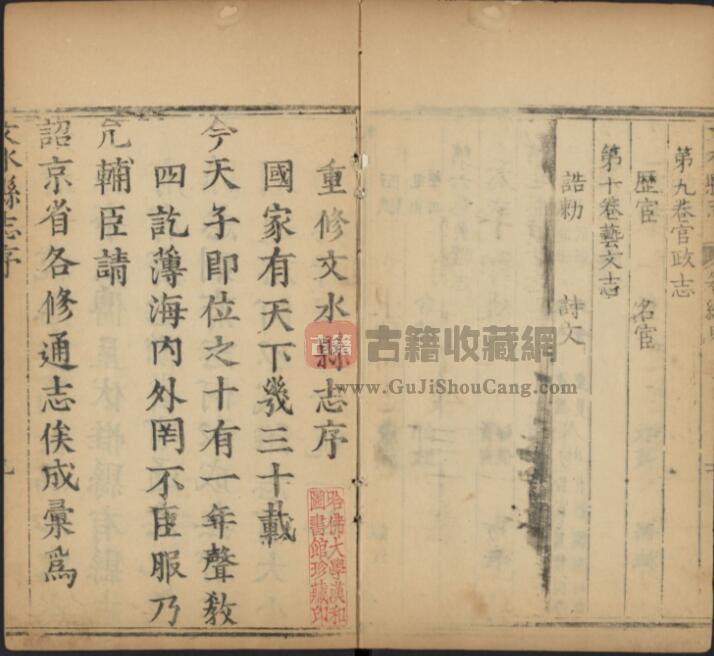 第九卷官政志
歴宦 名宦
第十卷藝文志
誥勅 詩文
重修文水縣志序
國家有天下幾三十載
今天子即位之十有一年聲敎
四訖薄海内外罔不臣服乃
允輔臣請
詔京省各修通志俟成彙爲
文水縣志序
哈佛大學漢和
圖書館珍藏印
古籍
古籍收藏網
www.GuJiShouCang.com